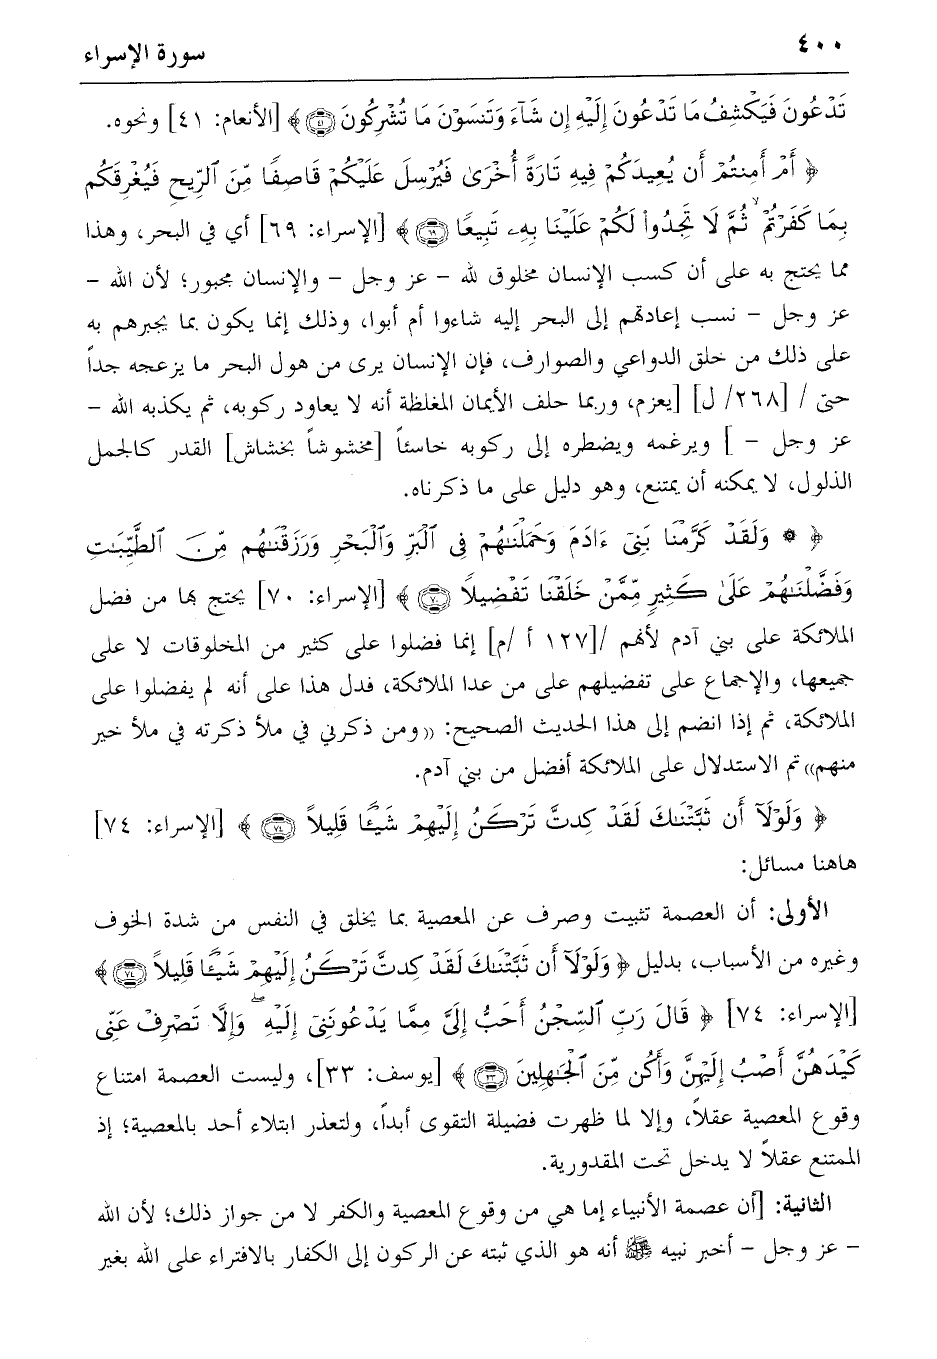 ٤٠٠
سورة الإسراء
تَدْعُونَ فَيَكْشِفُ مَا تَدْعُونَ إِلَيْهِ إِن شَآءَ وَتَنسَوْنَ مَا تُشْرِكُونَ ﴿٤١﴾ ﴾ [الأنعام: ٤١] ونحوه.
﴿ أَمْ أَمِنتُمْ أَن يُعِيدَكُمْ فِيهِ تَارَةً أُخْرَىٰ فَيُرْسِلَ عَلَيْكُمْ قَاصِفًا مِّنَ ٱلرِّيحِ فَيُغْرِقَكُم
بِمَا كَفَرْتُمْ ۙ ثُمَّ لَا تَجِدُوا۟ لَكُمْ عَلَيْنَا بِهِۦ تَبِيعًا ﴿٦٩﴾ ﴾ [الإسراء: ٦٩] أي في البحر، وهذا
مما يحتج به على أن كسب الإنسان مخلوق لله – عز وجل – والإنسان مجبور؛ لأن الله –
عز وجل – نسب إعادتهم إلى البحر إليه شاءوا أم أبوا، وذلك إنما يكون بما يجبرهم به
على ذلك من خلق الدواعي والصوارف، فإن الإنسان يرى من هول البحر ما يزعجه جداً
حتى / [٢٦٨/ ل] [يعزم، وربما حلف الأيمان المغلظة أنه لا يعاود ركوبه، ثم يكذبه الله –
عز وجل – ] ويرغمه ويضطره إلى ركوبه خاسئاً [مخشوشاً بخشاش] القدر كالجمل
الذلول، لا يمكنه أن يمتنع، وهو دليل على ما ذكرناه.
﴿ ۞ وَلَقَدْ كَرَّمْنَا بَنِىٓ ءَادَمَ وَحَمَلْنَـٰهُمْ فِى ٱلْبَرِّ وَٱلْبَحْرِ وَرَزَقْنَـٰهُم مِّنَ ٱلطَّيِّبَـٰتِ
وَفَضَّلْنَـٰهُمْ عَلَىٰ كَثِيرٍ مِّمَّنْ خَلَقْنَا تَفْضِيلًا ﴿٧٠﴾ ﴾ [الإسراء: ٧٠] يحتج بها من فضل
الملائكة على بني آدم لأنهم /[١٢٧ أ /م] إنما فضلوا على كثير من المخلوقات لا على
جميعها، والإجماع على تفضيلهم على من عدا الملائكة، فدل هذا على أنه لم يفضلوا على
الملائكة، ثم إذا انضم إلى هذا الحديث الصحيح: «ومن ذكرني في ملأ ذكرته في ملأ خير
منهم» تم الاستدلال على الملائكة أفضل من بني آدم.
﴿ وَلَوْلَآ أَن ثَبَّتْنَـٰكَ لَقَدْ كِدتَّ تَرْكَنُ إِلَيْهِمْ شَيْـًٔا قَلِيلًا ﴿٧٤﴾ ﴾ [الإسراء: ٧٤]
هاهنا مسائل:
الأولى: أن العصمة تثبيت وصرف عن المعصية بما يخلق في النفس من شدة الخوف
وغيره من الأسباب، بدليل ﴿ وَلَوْلَآ أَن ثَبَّتْنَـٰكَ لَقَدْ كِدتَّ تَرْكَنُ إِلَيْهِمْ شَيْـًٔا قَلِيلًا ﴿٧٤﴾ ﴾
[الإسراء: ٧٤] ﴿ قَالَ رَبِّ ٱلسِّجْنُ أَحَبُّ إِلَىَّ مِمَّا يَدْعُونَنِىٓ إِلَيْهِ ۖ وَإِلَّا تَصْرِفْ عَنِّى
كَيْدَهُنَّ أَصْبُ إِلَيْهِنَّ وَأَكُن مِّنَ ٱلْجَـٰهِلِينَ ﴿٣٣﴾ ﴾ [يوسف: ٣٣]، وليست العصمة امتناع
وقوع المعصية عقلاً، وإلا لما ظهرت فضيلة التقوى أبداً، ولتعذر ابتلاء أحد بالمعصية؛ إذ
الممتنع عقلاً لا يدخل تحت المقدورية.
الثانية: [أن عصمة الأنبياء إما هي من وقوع المعصية والكفر لا من جواز ذلك؛ لأن الله
– عز وجل – أخبر نبيه ﷺ أنه هو الذي ثبته عن الركون إلى الكفار بالافتراء على الله بغير